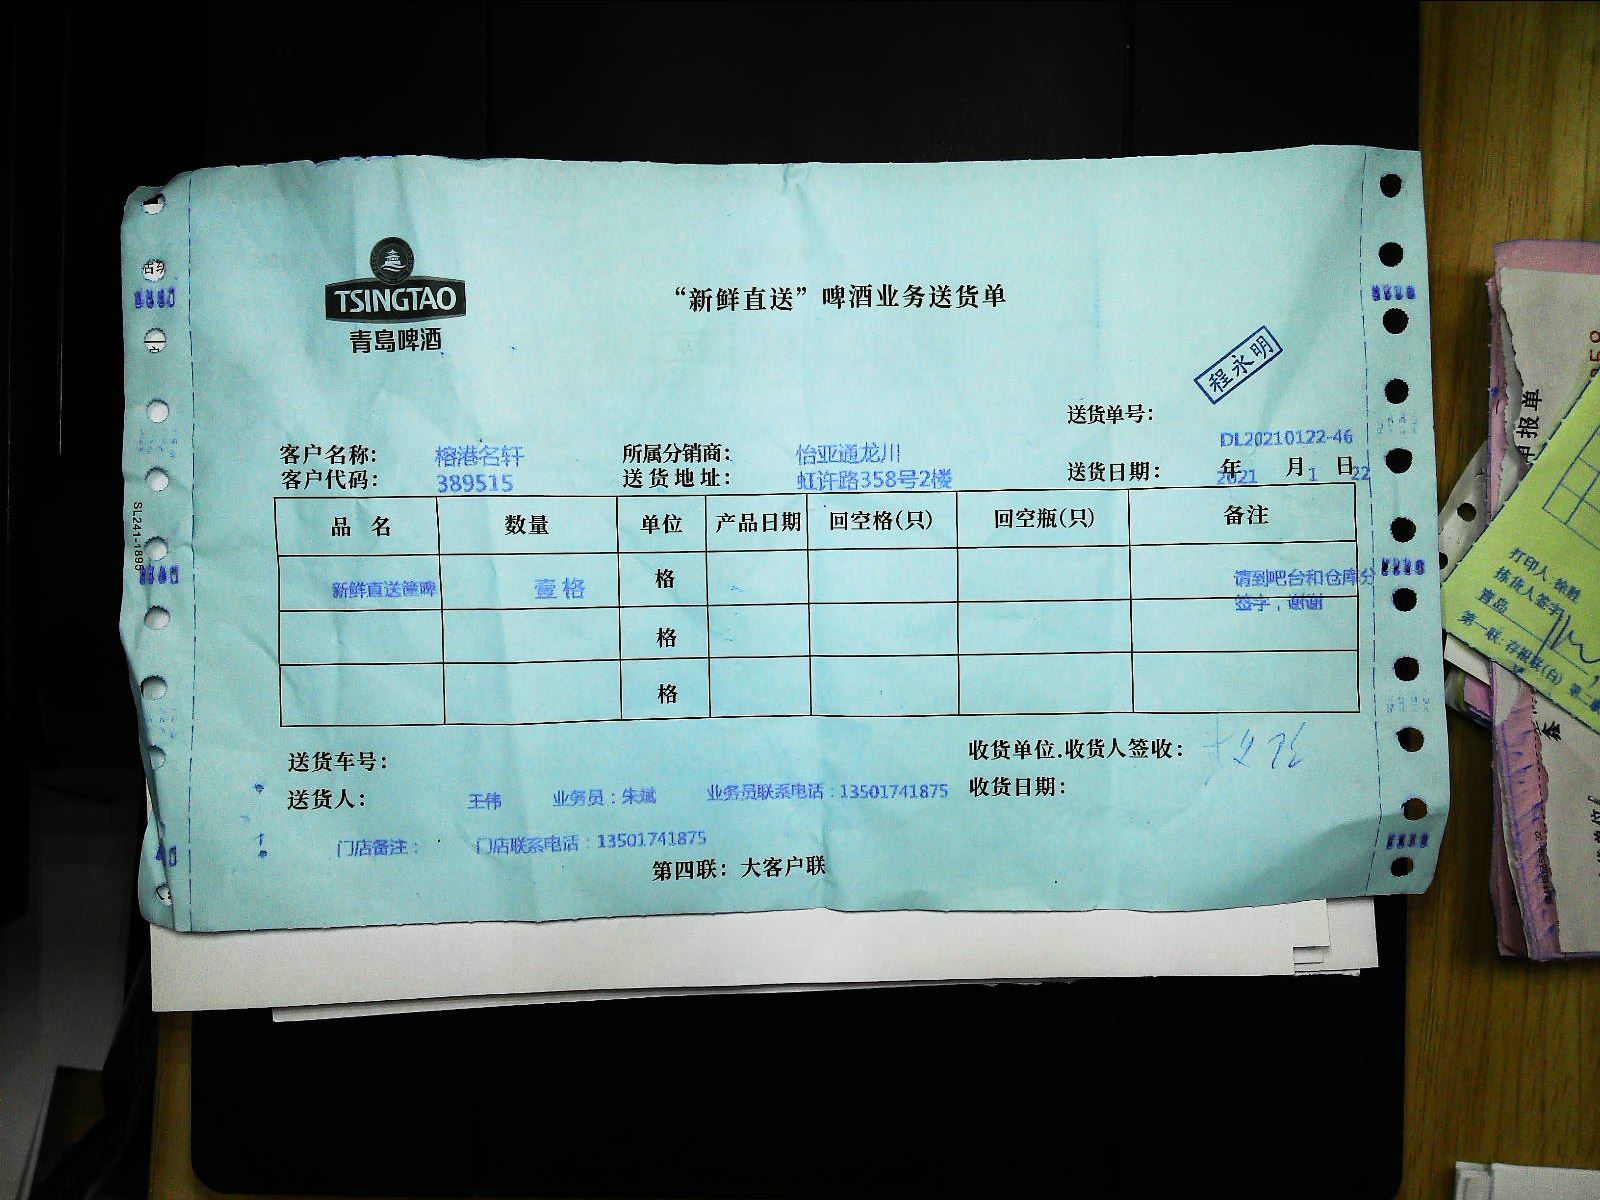 TSINGTAO
青岛啤酒
“新鲜直送”啤酒业务送货单
程永明
送货单号：
DL20210122-46
客户名称： 榕港名轩 所属分销商： 怡亚通龙川
客户代码： 389515 送货地址： 虹许路358号2楼 送货日期： 2021年 1月 22日
品 名 数量 单位 产品日期 回空格(只) 回空瓶(只) 备注
新鲜直送箍啤 壹格 格 请到吧台和仓库分
签字，谢谢
格
格
送货车号： 收货单位.收货人签收：
送货人： 王伟 业务员：朱斌 业务员联系电话：13501741875 收货日期：
门店备注： 门店联系电话：13501741875
第四联：大客户联
SL241-1896
打印人:徐胜
拣货人签字
青岛
第一联:存根联(白) 第